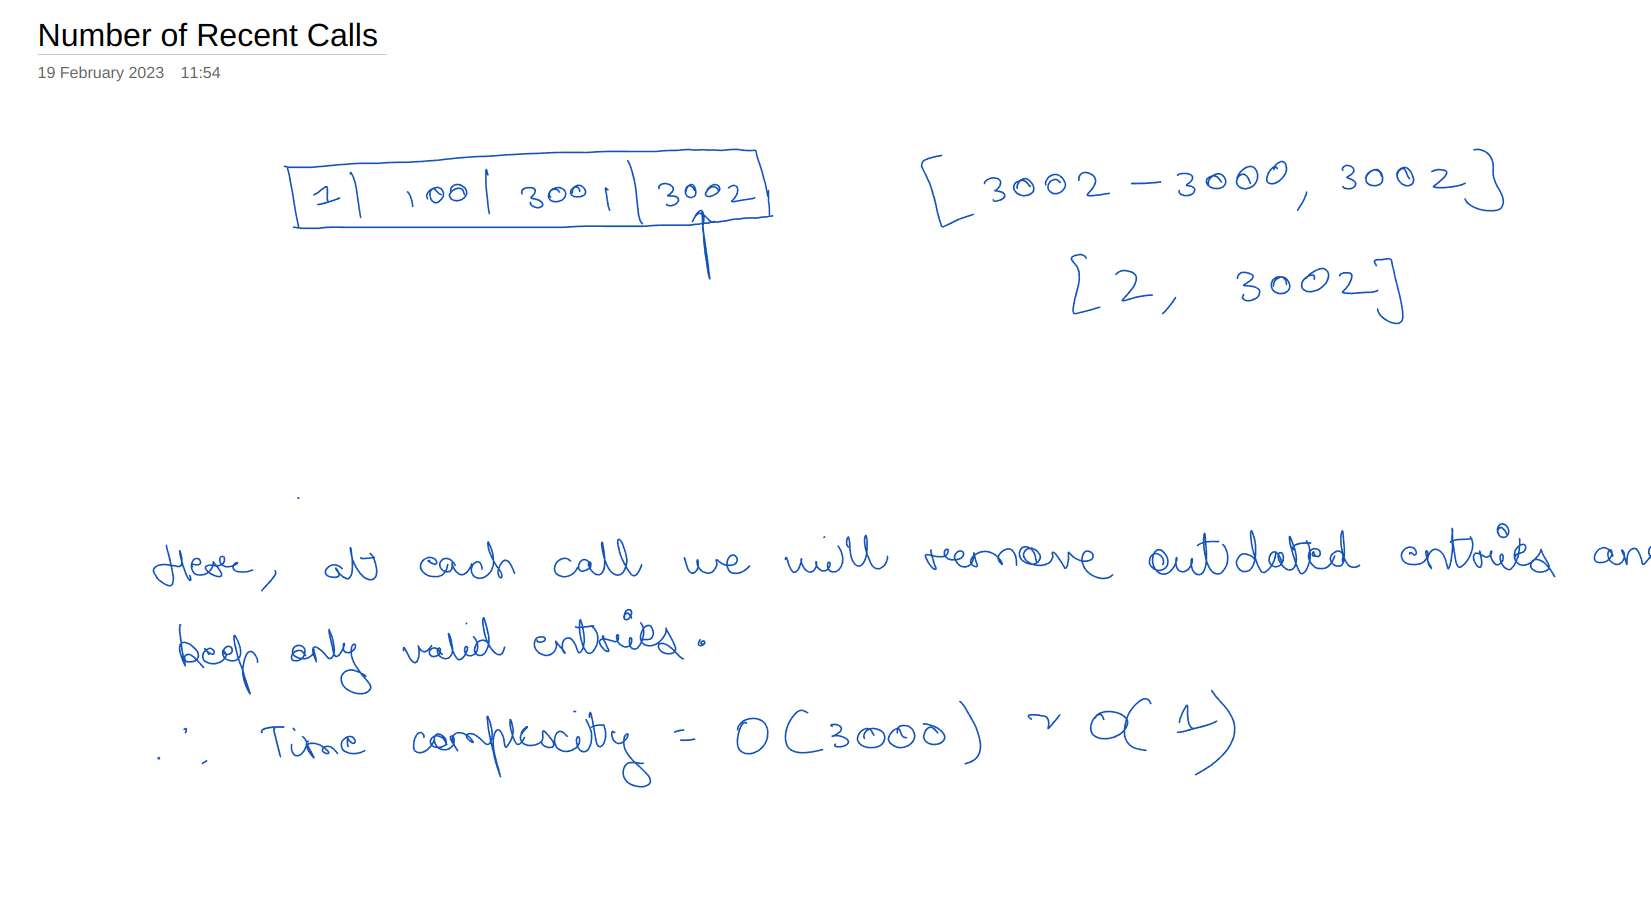 Number of Recent Calls
19 February 2023 11:54
1 | 100 | 3001 | 3002
[3002 - 3000, 3002]
[2, 3002]
Here, at each call we will remove outdated entries an
keep only valid entries.
∴ Time complexity = O(3000) ~ O(1)